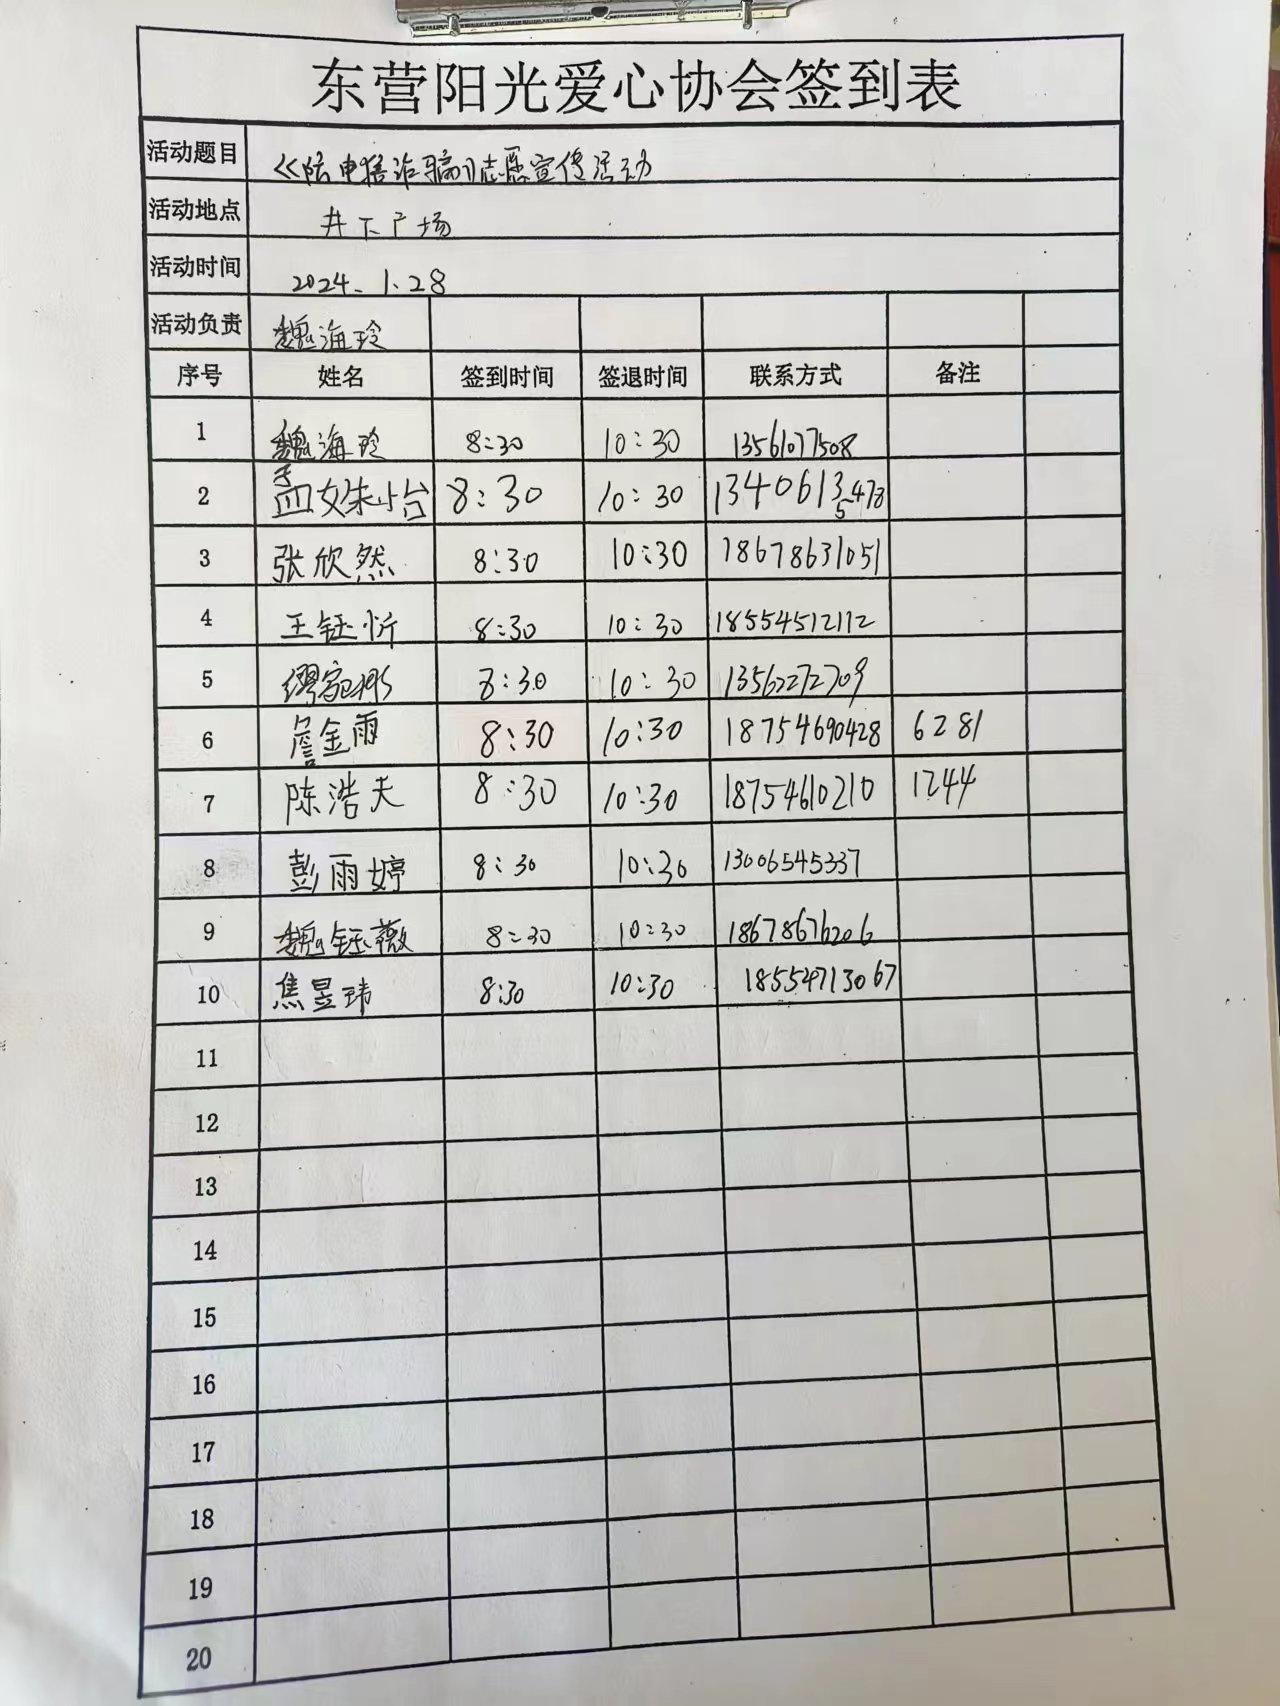 东营阳光爱心协会签到表
活动题目 《防电信诈骗》志愿宣传活动
活动地点 井下广场
活动时间 2024.1.28
活动负责 魏海玲
序号 姓名 签到时间 签退时间 联系方式 备注
1 魏海玲 8:30 10:30 13561077508
2 孟姝含 8:30 10:30
3 张欣然 8:30 10:30 18678631051
4 王钰忻 8:30 10:30 18554512112
5 缪 8:30 10:30 13562272709
6 詹金雨 8:30 10:30 18754690428 6281
7 陈浩夫 8:30 10:30 18754610210 1244
8 彭雨婷 8:30 10:30 13006545337
9 魏钰薇 8:30 10:30 18678676206
10 焦昱玮 8:30 10:30 18554713067
11
12
13
14
15
16
17
18
19
20